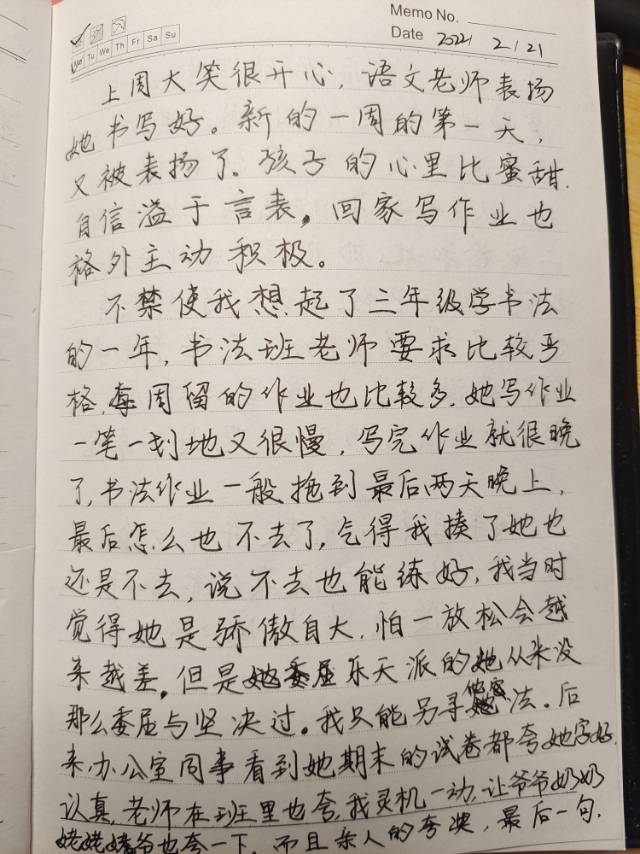 Memo No.
Mon Tu We Th Fr Sa Su
Date 2022 2/21
上周大笑很开心，语文老师表扬
她书写好。新的一周的第一天，
又被表扬了。孩子的心里比蜜甜，
自信溢于言表。回家写作业也
格外主动积极。
不禁使我想起了三年级学书法
的一年，书法班老师要求比较严
格，每周留的作业也比较多，她写作业
一笔一划地又很慢，写完作业就很晚
了，书法作业一般拖到最后两天晚上，
最后怎么也不去了，气得我揍了她也
还是不去，说不去也能练好，我当时
觉得她是骄傲自大，怕一放松会越
来越差。但是乐天派的她从来没
那么委屈与坚决过。我只能另寻他法。后
来，办公室同事看到她期末的试卷都夸她字好，
认真，老师在班里也夸，我灵机一动，让爷爷奶奶
姥姥姥爷也夸一下，而且杀人的夸奖，最后一句，